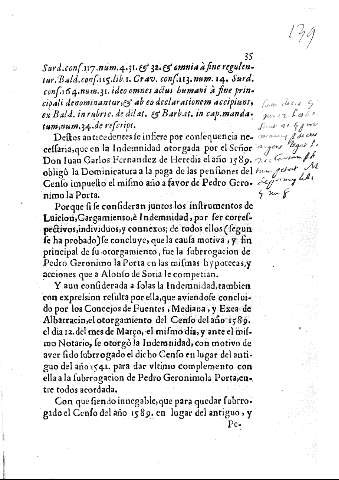 139
35
Surd. cons. 117. num. 4. 31. & 32. & omnia à fine regulen-
tur. Bald. cons. 115. lib. 1. Grav. cons. 113. num. 14. Surd.
cons. 164. num. 31. ideo omnes actus humani à fine prin-
cipali denominantur, & ab eo declarationem accipiunt,
ex Bald. in rubric. de dilat. & Barbat. in cap. manda-
tum, num. 34. de rescript.
Destos antecedentes se infiere por consequencia ne-
cessaria, que en la Indemnidad otorgada por el Señor
Don Iuan Carlos Fernandez de Heredi el año 1589.
obligò la Dominicatura a la paga de las pensiones del
Censo impuesto el mismo año a favor de Pedro Gero-
nimo la Porta.
Porque si se consideran juntos los instrumentos de
Luicion, Cargamiento, è Indemnidad, por ser cores-
pectivos, individuos, y connexos; de todos ellos (segun
se ha probado) se concluye, que la causa motiva, y fin
principal de su otorgamiento, fue la subrogacion de
Pedro Geronimo la Porta en las mismas hypotecas, y
acciones que a Alonso de Soria le competian.
Y aun considerada a solas la Indemnidad, tambien
con expression resulta por ella, que aviendose conclui-
do por los Concejos de Fuentes, Mediana, y Exea de
Albarracin, el otorgamiento del Censo del año 1589.
el dia 12. del mes de Março, el mismo dia, y ante el mis-
mo Notario, se otorgò la Indemnidad, con motivo de
aver sido subrogado el dicho Censo en lugar del anti-
guo del año 1542. para dar vltimo complemento con
ella a la subrogacion de Pedro Geronimo la Porta, en-
tre todos acordada.
Con que siendo innegable, que para quedar subro-
gado el Censo del año 1589. en lugar del antiguo, y
Pe-